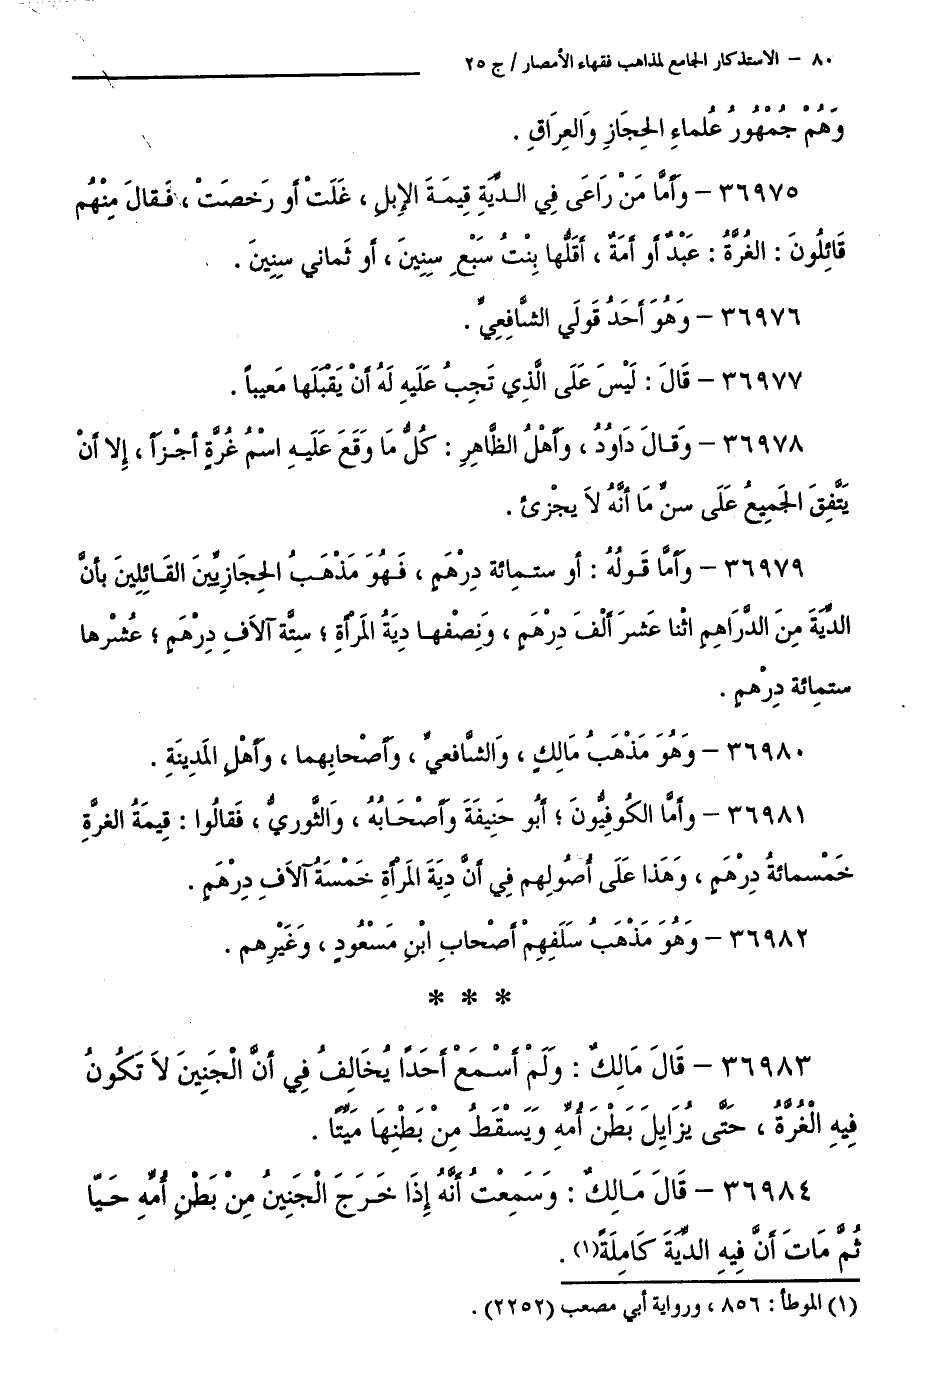 ٨٠ – الاستذكار الجامع لمذاهب فقهاء الأمصار / ج ٢٥
وَهُمْ جُمْهُورُ عُلماءِ الحِجَازِ وَالعِرَاقِ .
٣٦٩٧٥ – وَأَمَّا مَنْ رَاعَى فِي الـدِّيَةِ قِيمَـةَ الإِبلِ ، غَلَتْ أو رَخصَتْ ، فَـقالَ مِنْهُم
قَائِلُونَ : الغُرَّةُ : عَبْدٌ أو أَمَةٌ ، أَقَلُّها بِنْتُ سَبْعِ سِنِينَ ، أو ثَماني سِنِينَ .
٣٦٩٧٦ – وَهُوَ أَحَدُ قَولَي الشَّافِعِيِّ .
٣٦٩٧٧ – قَالَ : لَيْسَ عَلَى الَّذِي تَجِبُ عَلَيهِ لَهُ أَنْ يَقْبَلَها مَعيباً .
٣٦٩٧٨ – وَقَـالَ دَاوُدُ ، وَأَهْلُ الظَّاهِرِ : كُلُّ مَا وَقَعَ عَلَيـهِ اسْمُ غُرَّةٍ أجْـزَأَ ، إِلا أَنْ
يَتَّفِقَ الجَمِيعُ عَلَى سنٍّ مَا أَنَّهُ لاَ يجْزئ .
٣٦٩٧٩ – وَأَمَّا قَـولُهُ : أو ستـمِائة درْهَمٍ ، فَـهُوَ مَذْهَـبُ الحِجَازِيِّينَ القَـائِلِينَ بأنَّ
الدِّيَةَ مِنَ الدَّرَاهِمِ اثْنا عَشرَ أَلْفَ درْهَمٍ ، وَنِصْفهـا ديَةُ المَرْأةِ ؛ ستَّة آلافِ دِرْهَمٍ ؛ عُشْرها
ستمِائة دِرْهمٍ .
٣٦٩٨٠ – وَهُوَ مَذْهَبُ مَالكٍ ، وَالشَّافعيِّ ، وَأَصْحابِهما ، وَأَهْلِ المَدِينَةِ .
٣٦٩٨١ – وَأَمَّا الكُوفِيُّونَ ؛ أَبُو حَنِيفَةَ وَأَصْحَـابُهُ ، وَالثَّوريُّ ، فَقالُوا : قِيمَةُ الغرَّةِ
خَمْسمائةُ دِرْهَمٍ ، وَهَذا عَلَى أُصُولِهم فِي أَنَّ ديَةَ المَرْأَةِ خَمْسَةُ آلاَفِ دِرْهَمٍ .
٣٦٩٨٢ – وَهُوَ مَذْهَبُ سَلَفِهِمْ أَصْحابِ ابْنِ مَسْعُودٍ ، وَغَيْرِهم .
* * *
٣٦٩٨٣ – قَالَ مَالِكٌ : وَلَمْ أَسْـمَعْ أَحَدًا يُخَالِفُ فِي أَنَّ الْجَنِينَ لاَ تَكُونُ
فِيهِ الْغُرَّةُ ، حَتَّى يُزَايِلَ بَطْنَ أُمِّهِ وَيَسْقَطُ مِنْ بَطْنِهَا مَيِّتًا .
٣٦٩٨٤ – قَالَ مَـالِكٌ : وَسَمِعْتُ أَنَّهُ إِذَا خَـرَجَ الْجَنِينُ مِنْ بَطْنِ أُمِّهِ حَـيًّا
ثُمَّ مَاتَ أَنَّ فِيهِ الدِّيَةَ كَامِلَةً(١) .
(١) الموطأ : ٨٥٦ ، ورواية أبي مصعب (٢٢٥٢) .